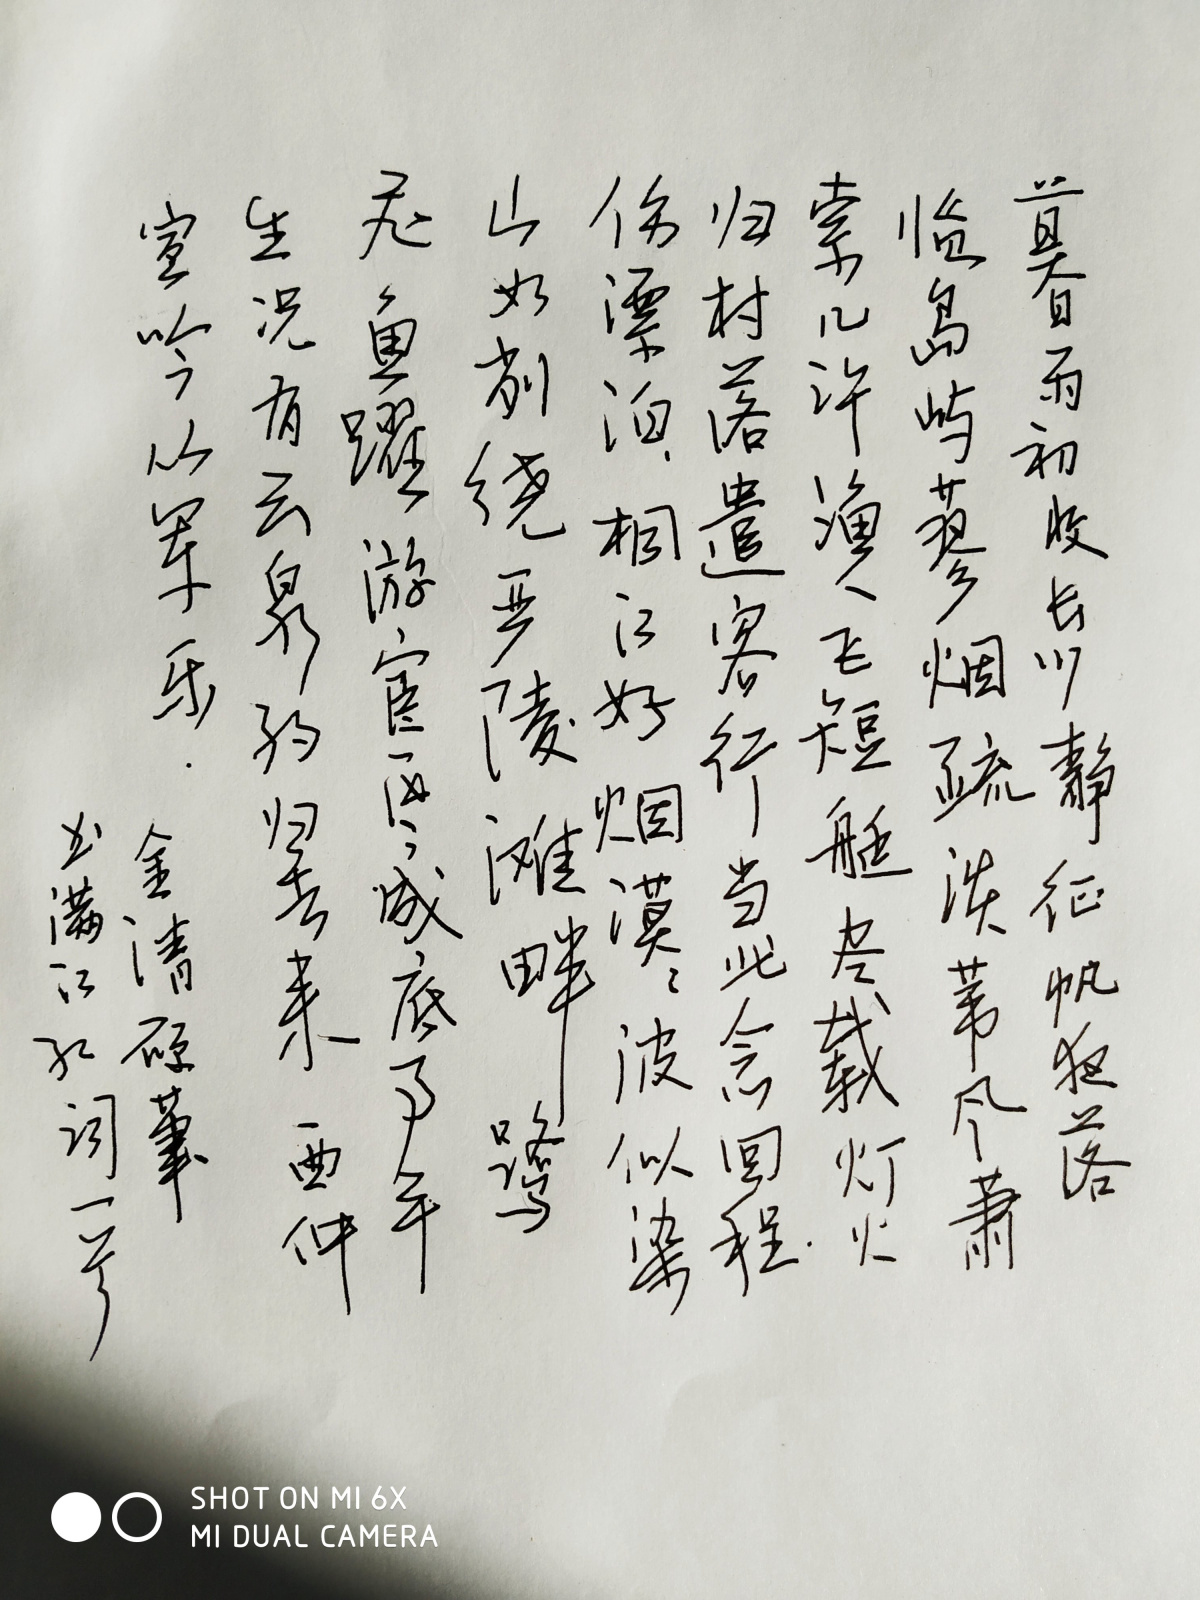 暮雨初收长川静征帆夜落
临岛屿蓼烟疏淡苇风萧
索几许渔人飞短艇尽载灯火
归村落遣客行当此念回程.
伤漂泊、桐江好烟漠〻波似染
山如削绕严陵滩畔鹭
飞鱼跃游宦区〻成底事平
生况有云泉约归去来一曲仲
宣吟从军乐.
金清硕
书满江红词一首
SHOT ON MI 6X
MI DUAL CAMERA